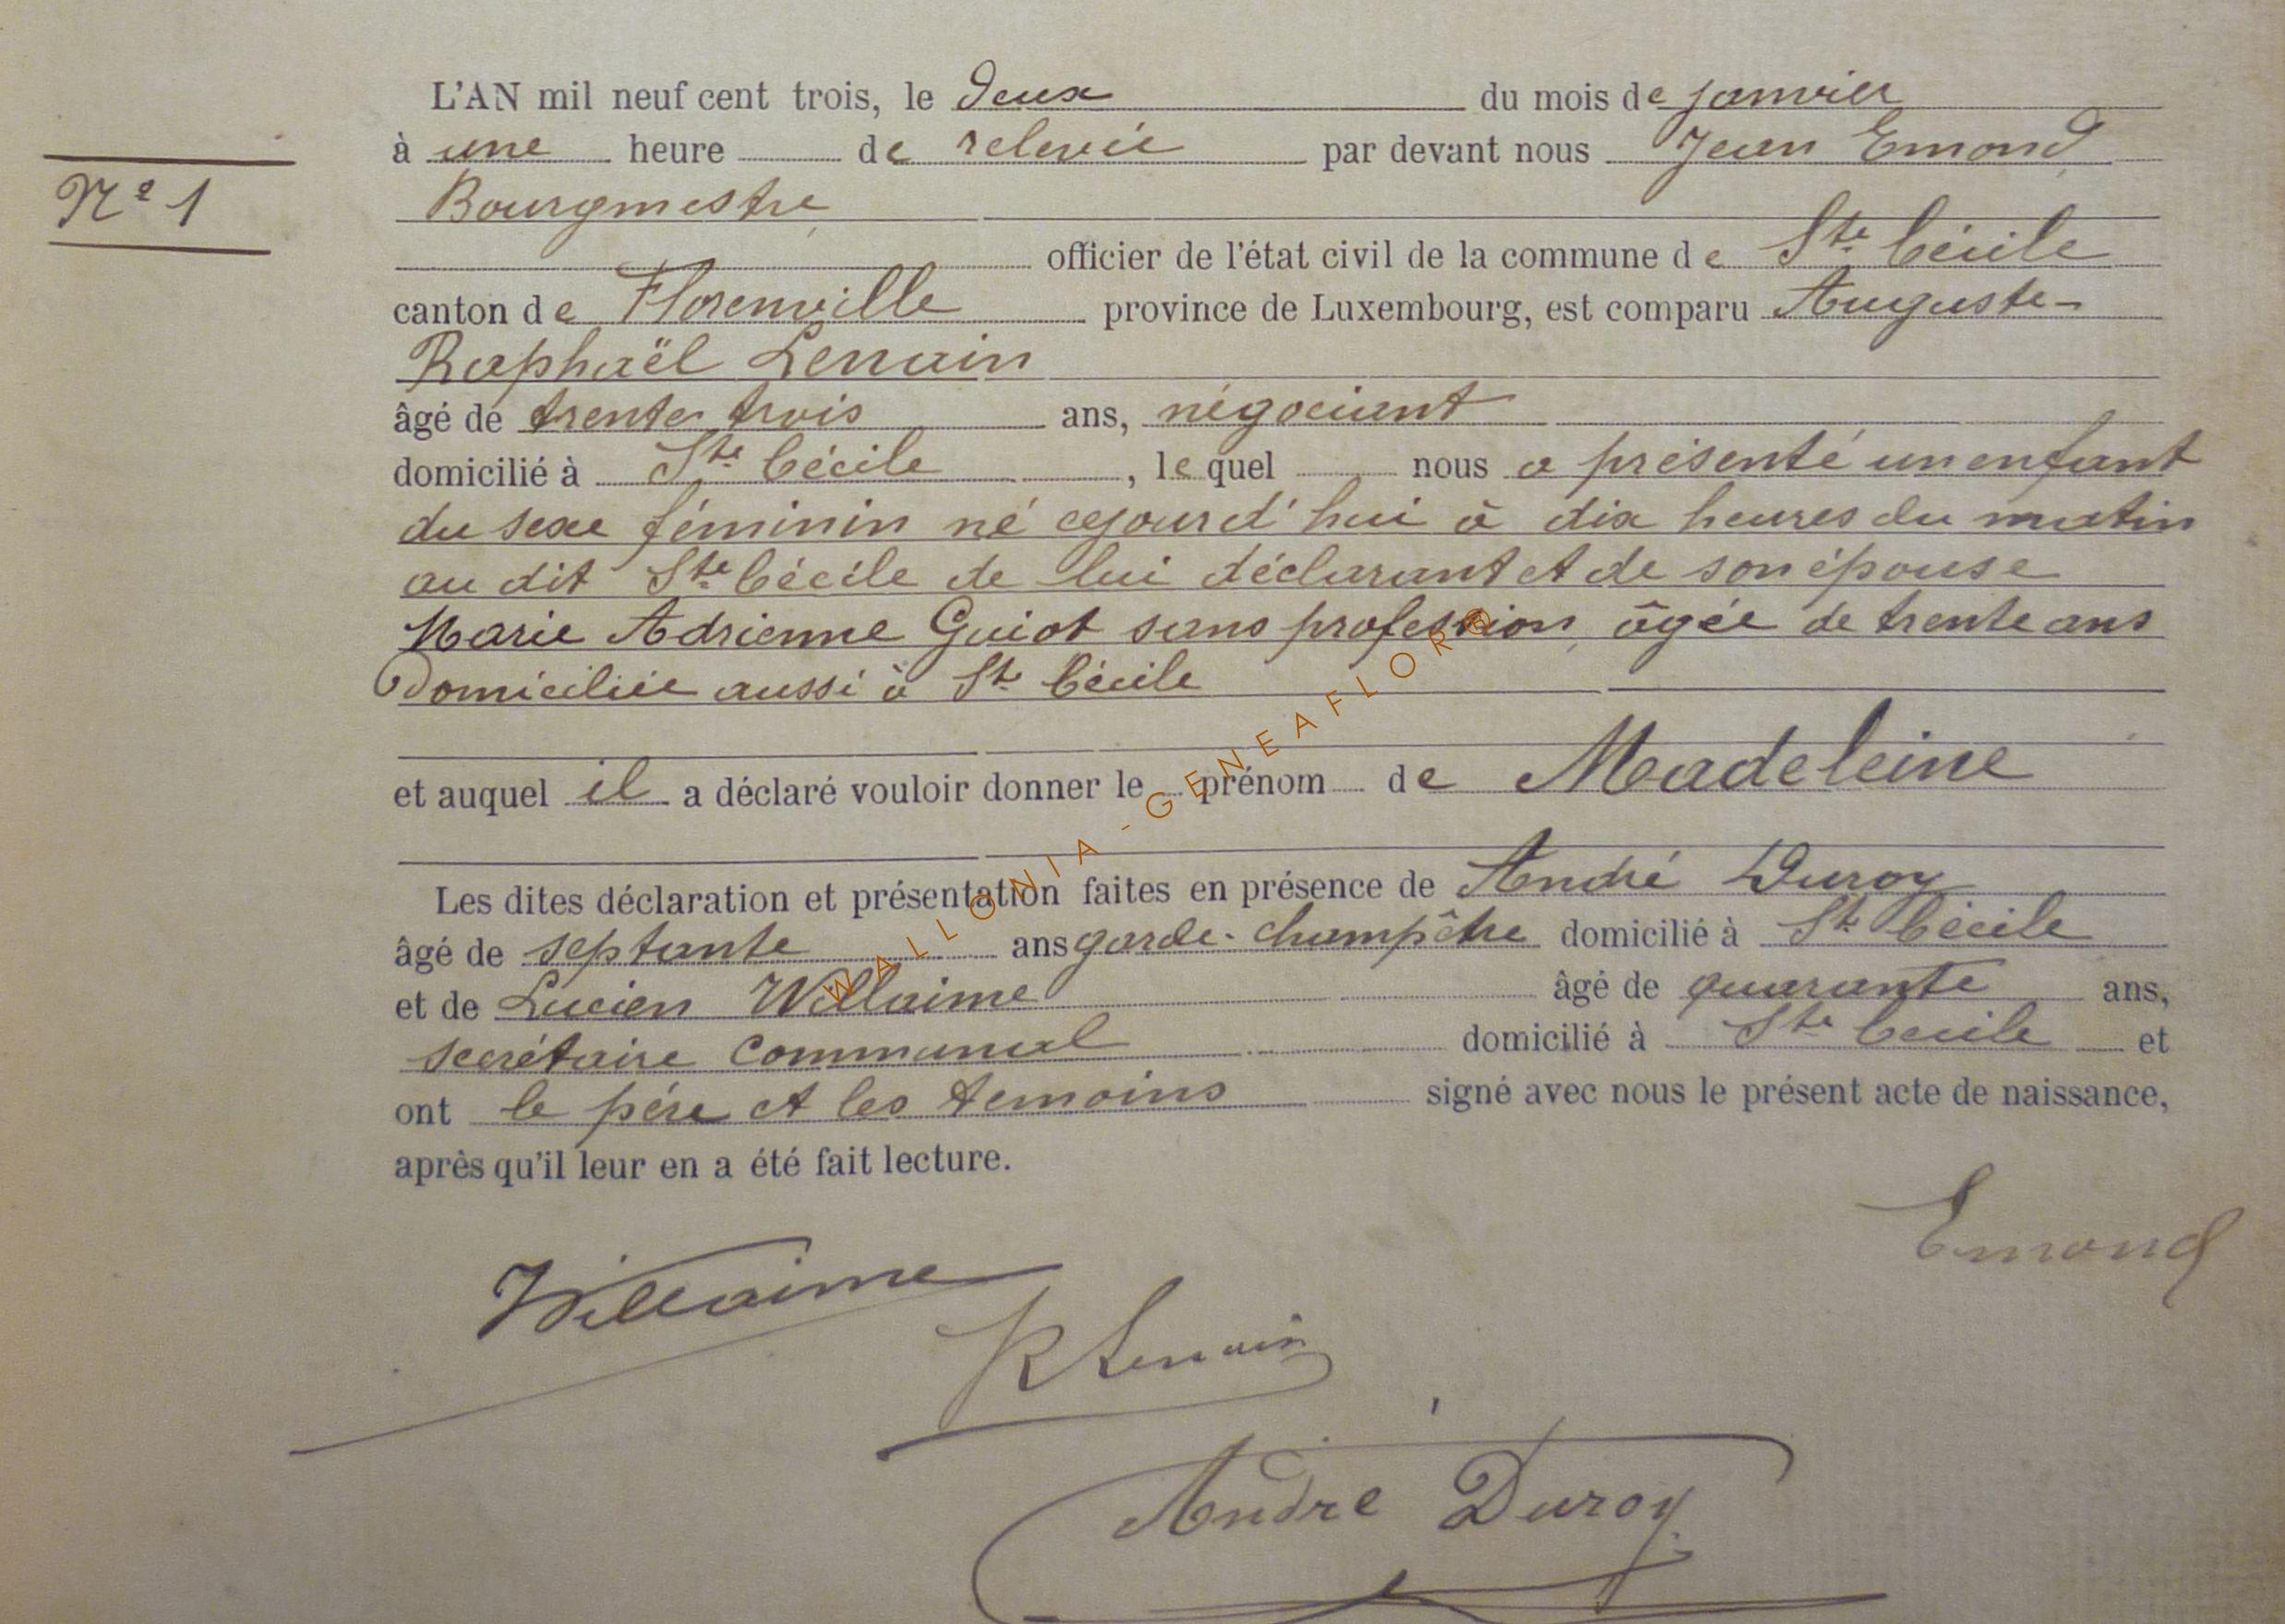 L'AN mil neuf cent trois, le deux du mois de janvier
à une heure de relevée par devant nous Jean Emond,
Nº 1
Bourgmestre
officier de l'état civil de la commune de Ste Cécile
canton de Florenville province de Luxembourg, est comparu Auguste-
Raphaël Lerrain
âgé de trente trois ans, négociant
domicilié à Ste Cécile, lequel nous a présenté un enfant
du sexe féminin né cejourd'hui à dix heures du matin
au dit Ste Cécile de lui déclarant et de son épouse
Marie Adrienne Guiot sans profession, âgée de trente ans
Domiciliée aussi à Ste Cécile
et auquel il a déclaré vouloir donner le prénom de Madeleine
Les dites déclaration et présentation faites en présence de André Duroy
âgé de septante ans garde-champêtre domicilié à Ste Cécile
et de Lucien Willaime âgé de quarante ans,
secrétaire communal domicilié à Ste Cécile et
ont le père et les temoins signé avec nous le présent acte de naissance,
après qu'il leur en a été fait lecture.
Emond
Willaime
R Lerrain
André Duroy
WALLONIA-GENEAFLOR®